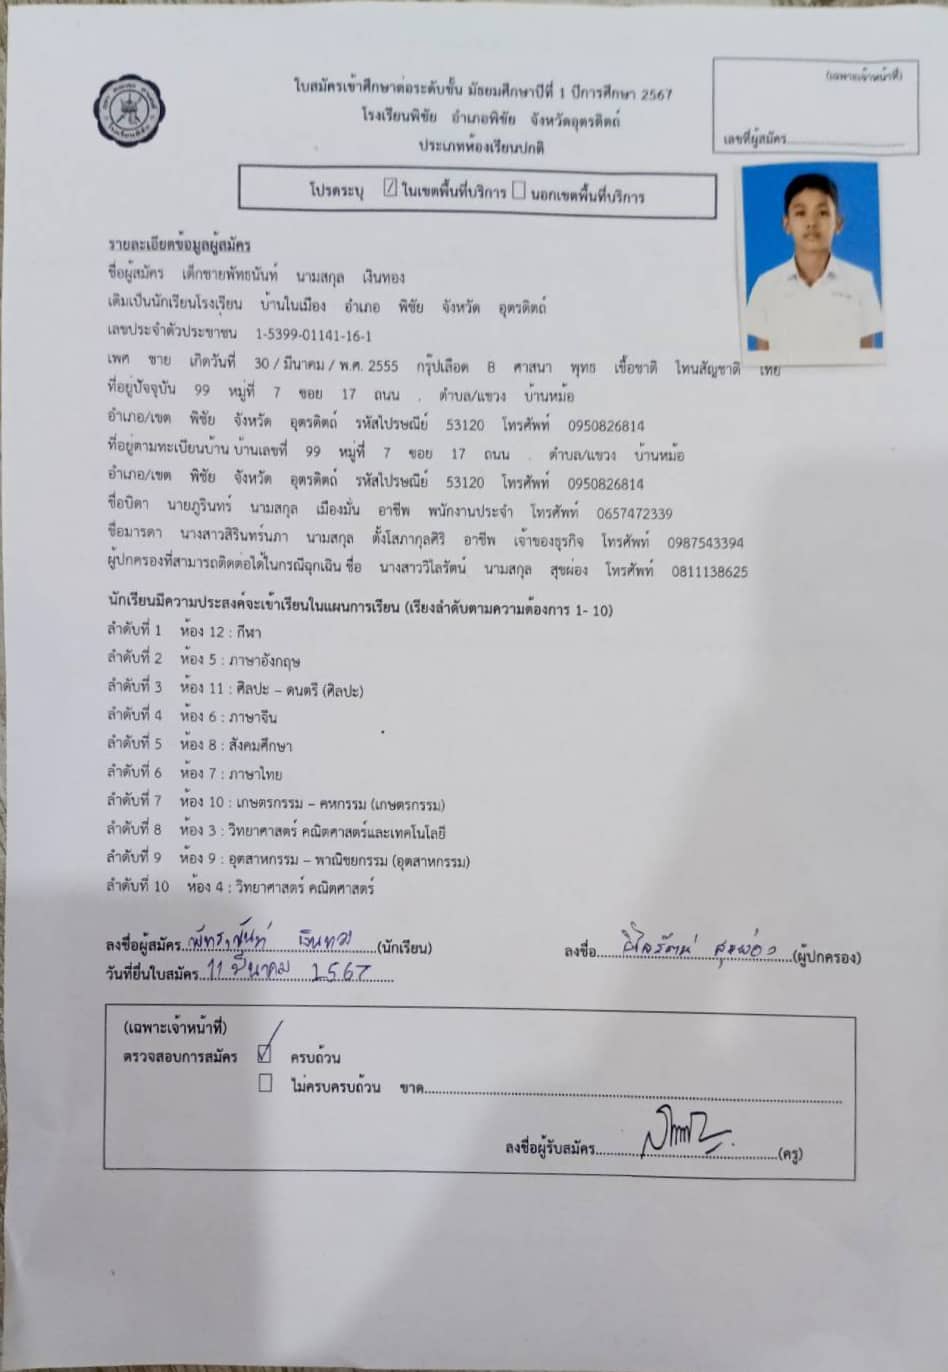 (เฉพาะเจ้าหน้าที่)
เลขที่ผู้สมัคร
ใบสมัครเข้าศึกษาต่อระดับชั้น มัธยมศึกษาปีที่ 1 ปีการศึกษา 2567
โรงเรียนพิชัย อำเภอพิชัย จังหวัดอุตรดิตถ์
ประเภทห้องเรียนปกติ
โปรดระบุ ☑ ในเขตพื้นที่บริการ ☐ นอกเขตพื้นที่บริการ
รายละเอียดข้อมูลผู้สมัคร
ชื่อผู้สมัคร เด็กชายพัทธนันท์ นามสกุล เงินทอง
เดิมเป็นนักเรียนโรงเรียน บ้านในเมือง อำเภอ พิชัย จังหวัด อุตรดิตถ์
เลขประจำตัวประชาชน 1-5399-01141-16-1
เพศ ชาย เกิดวันที่ 30 / มีนาคม / พ.ศ. 2555 กรุ๊ปเลือด B ศาสนา พุทธ เชื้อชาติ ไทนสัญชาติ ไทย
ที่อยู่ปัจจุบัน 99 หมู่ที่ 7 ซอย 17 ถนน . ตำบล/แขวง บ้านหม้อ
อำเภอ/เขต พิชัย จังหวัด อุตรดิตถ์ รหัสไปรษณีย์ 53120 โทรศัพท์ 0950826814
ที่อยู่ตามทะเบียนบ้าน บ้านเลขที่ 99 หมู่ที่ 7 ซอย 17 ถนน . ตำบล/แขวง บ้านหม้อ
อำเภอ/เขต พิชัย จังหวัด อุตรดิตถ์ รหัสไปรษณีย์ 53120 โทรศัพท์ 0950826814
ชื่อบิดา นายภูรินทร์ นามสกุล เมืองมั่น อาชีพ พนักงานประจำ โทรศัพท์ 0657472339
ชื่อมารดา นางสาวสิรินทร์นภา นามสกุล ตั้งโสภากุลศิริ อาชีพ เจ้าของธุรกิจ โทรศัพท์ 0987543394
ผู้ปกครองที่สามารถติดต่อได้ในกรณีฉุกเฉิน ชื่อ นางสาววิไลรัตน์ นามสกุล สุขผ่อง โทรศัพท์ 0811138625
นักเรียนมีความประสงค์จะเข้าเรียนในแผนการเรียน (เรียงลำดับตามความต้องการ 1- 10)
ลำดับที่ 1 ห้อง 12 : กีฬา
ลำดับที่ 2 ห้อง 5 : ภาษาอังกฤษ
ลำดับที่ 3 ห้อง 11 : ศิลปะ – ดนตรี (ศิลปะ)
ลำดับที่ 4 ห้อง 6 : ภาษาจีน
ลำดับที่ 5 ห้อง 8 : สังคมศึกษา
ลำดับที่ 6 ห้อง 7 : ภาษาไทย
ลำดับที่ 7 ห้อง 10 : เกษตรกรรม – คหกรรม (เกษตรกรรม)
ลำดับที่ 8 ห้อง 3 : วิทยาศาสตร์ คณิตศาสตร์และเทคโนโลยี
ลำดับที่ 9 ห้อง 9 : อุตสาหกรรม – พาณิชยกรรม (อุตสาหกรรม)
ลำดับที่ 10 ห้อง 4 : วิทยาศาสตร์ คณิตศาสตร์
ลงชื่อผู้สมัคร พัทธนันท์ เงินทอง (นักเรียน) ลงชื่อ วิไลรัตน์ สุขผ่อง (ผู้ปกครอง)
วันที่ยื่นใบสมัคร 11 มีนาคม 2567
(เฉพาะเจ้าหน้าที่)
ตรวจสอบการสมัคร ☑ ครบถ้วน
☐ ไม่ครบครบถ้วน ขาด
ลงชื่อผู้รับสมัคร (ครู)